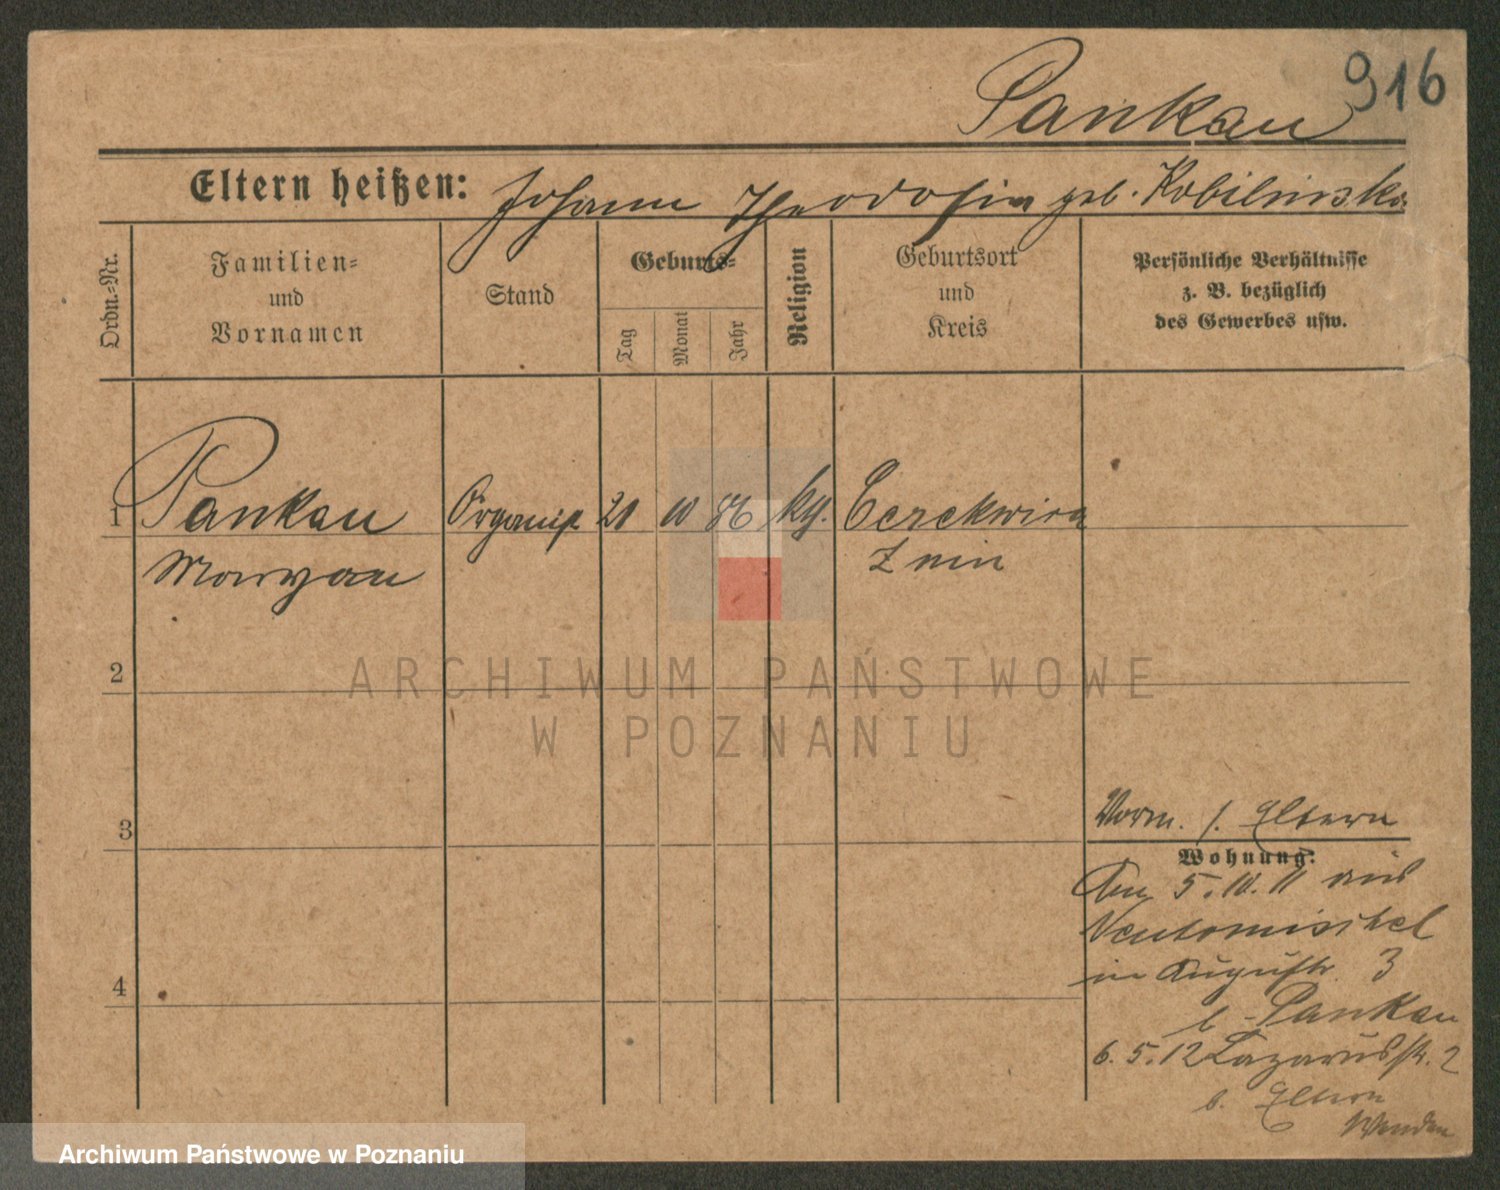 916
Pankau
Eltern heißen: Johann Theodosia geb. Kobilinska
Ordn.-Nr.
Familien-
und
Vornamen
Stand
Geburts-
Tag
Monat
Jahr
Religion
Geburtsort
und
Kreis
Persönliche Verhältnisse
z. B. bezüglich
des Gewerbes usw.
1 Pankau Organist 20 10 86 kg. Cerekwica
Maryan Znin
2
3
4
Vorm. s. Eltern
Wohnung:
Am 5.10.11 aus
Neutomischel
in Augustr. 3
b. Pankau
6.5.12 Lazarusstr. 2
b. Eltern
Wenden
ARCHIWUM PAŃSTWOWE
W POZNANIU
Archiwum Państwowe w Poznaniu